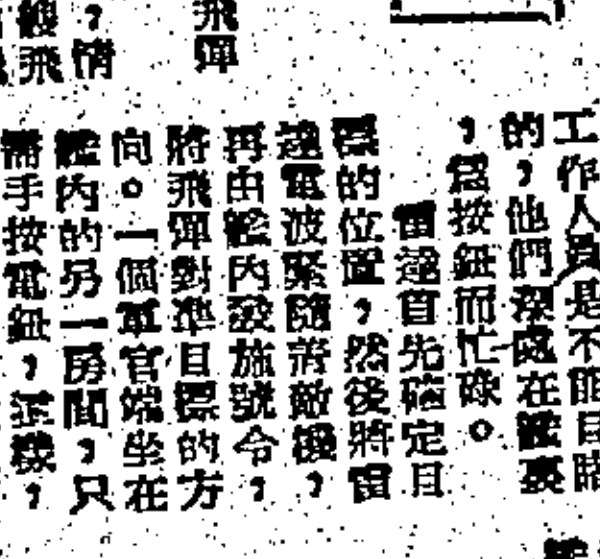 飛彈
情
艘飛
工作人員是不能目睹
的，他們深處在艙裏
，為按鈕而忙碌。
雷達首先確定目
標的位置，然後將雷
達電波緊隨著敵機，
再由艦內發施號令，
將飛彈對準目標的方
向。一個軍官端坐在
艦內的另一房間，只
需手按電鈕，這樣，